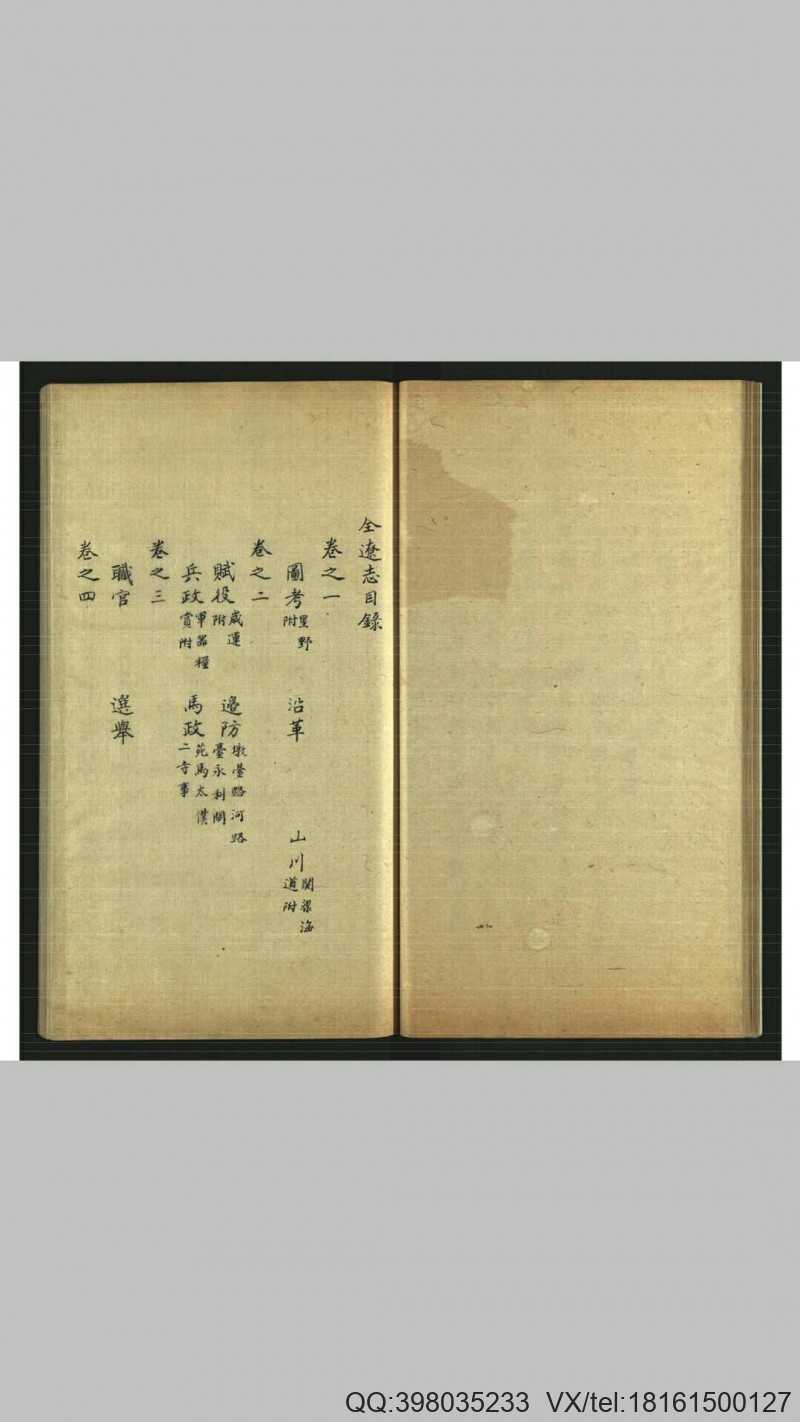 全遼志目錄
卷之一
圖考 星野附 沿革 山川 關梁海道附
卷之二
賦役 歲運附 邊防 墩臺路河路臺永利閘
兵政 軍器糧賞附 馬政 苑馬太僕二寺事
卷之三
職官 選舉
卷之四
QQ:398035233 VX/tel:18161500127